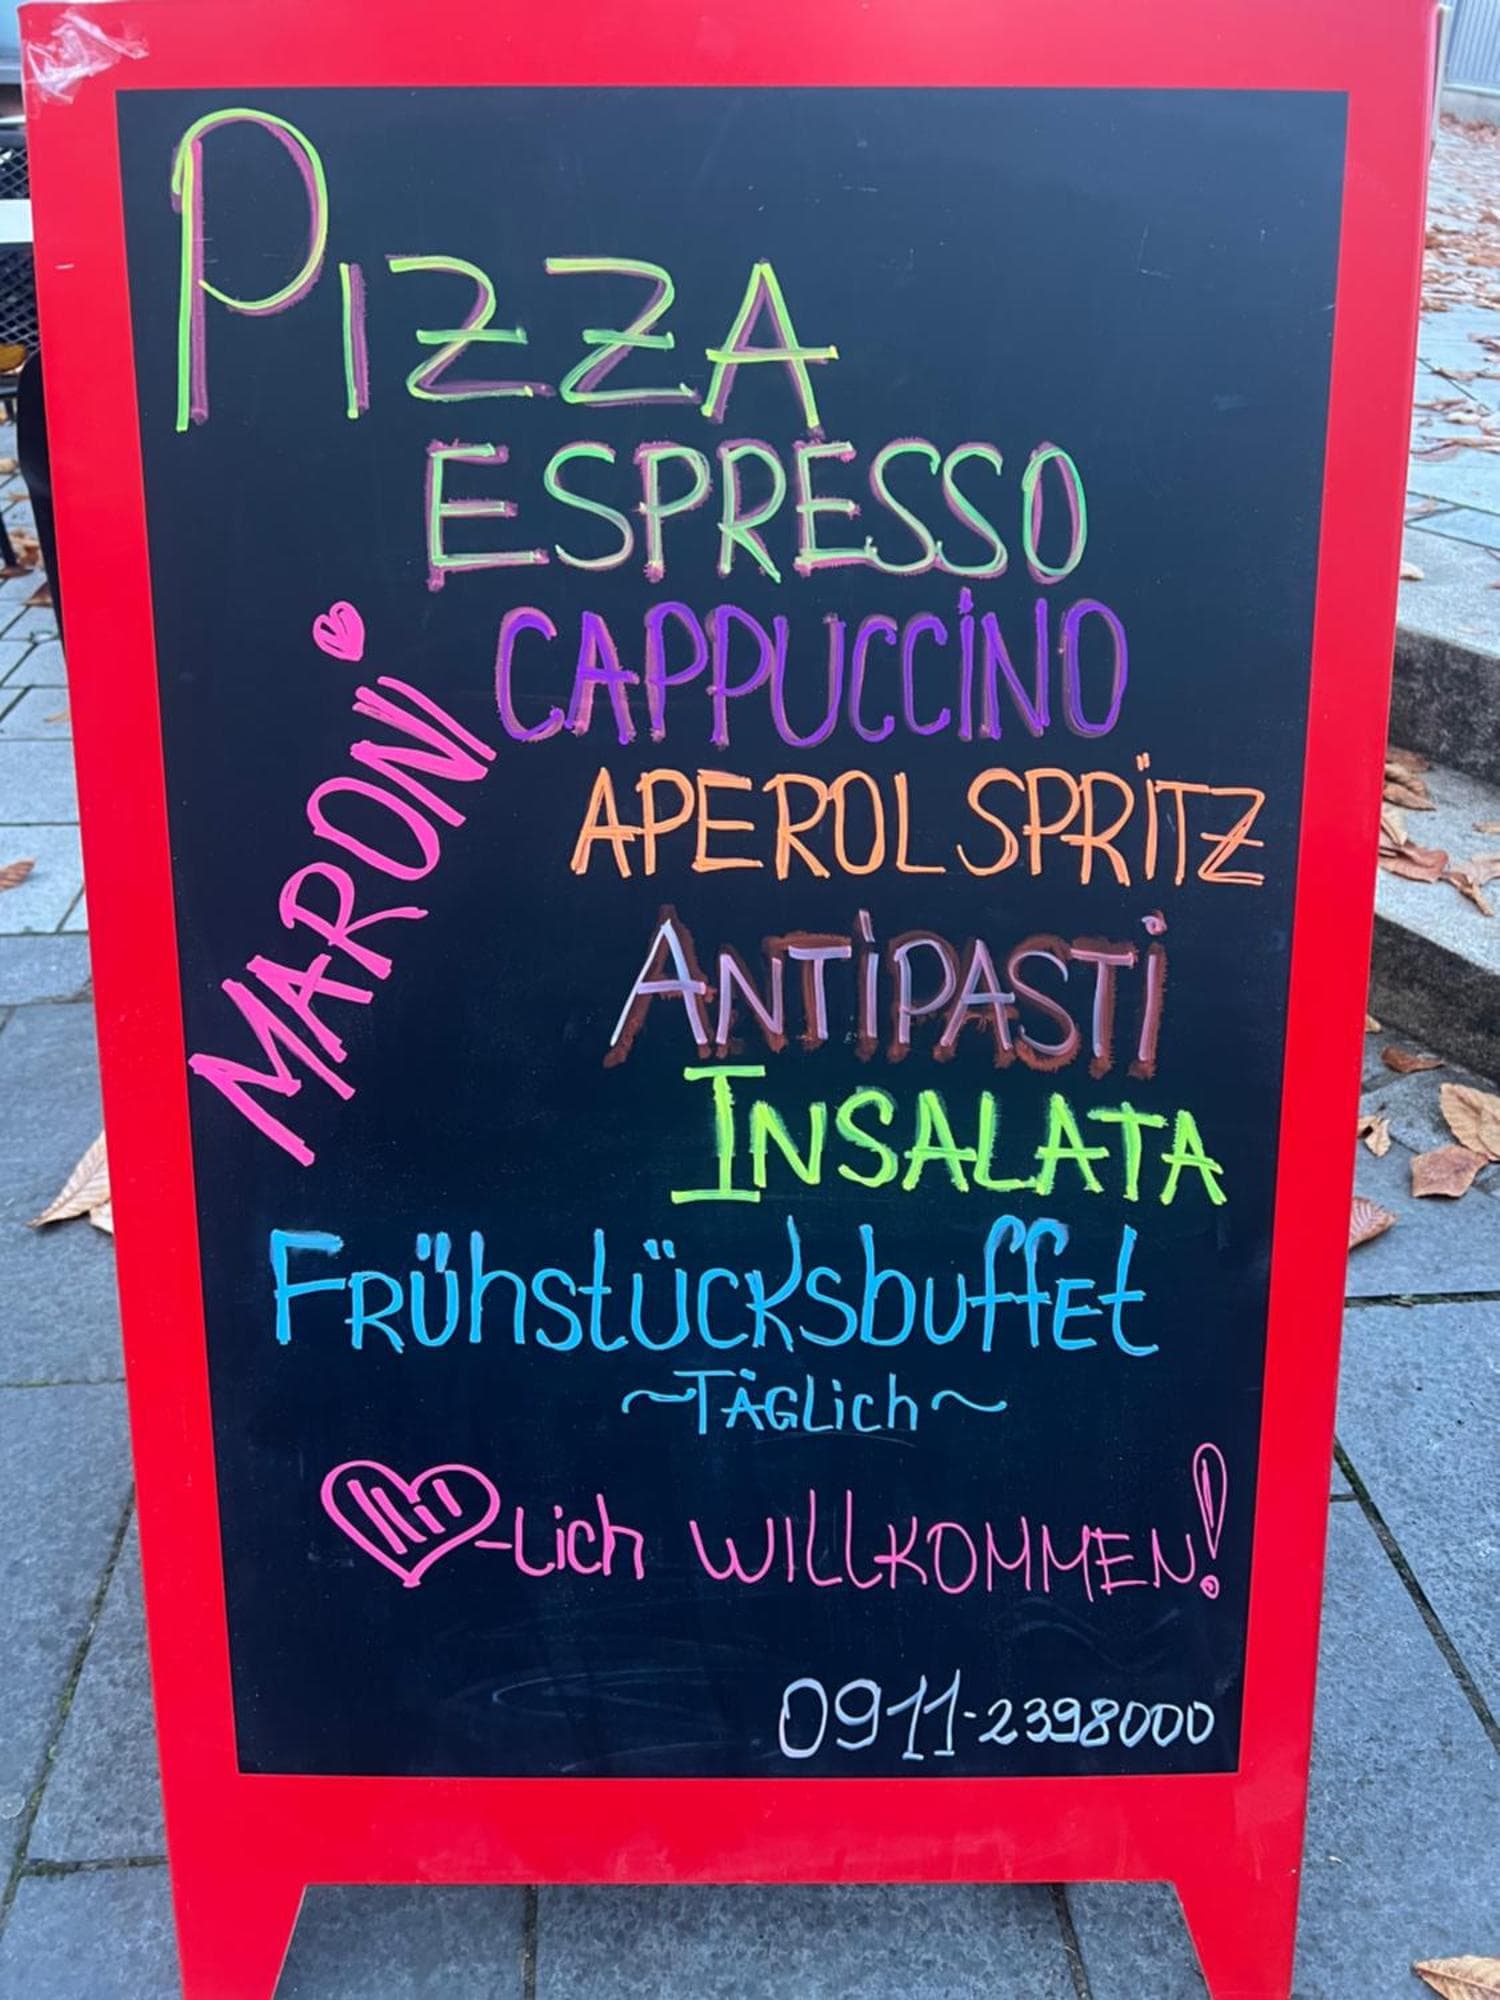 PIZZA
ESPRESSO
CAPPUCCINO
MARONI
APEROL SPRITZ
ANTIPASTI
INSALATA
FRÜhstücksbuffEt
~TÄGLich~
-Lich WILLKOMMEN!
0911-2398000